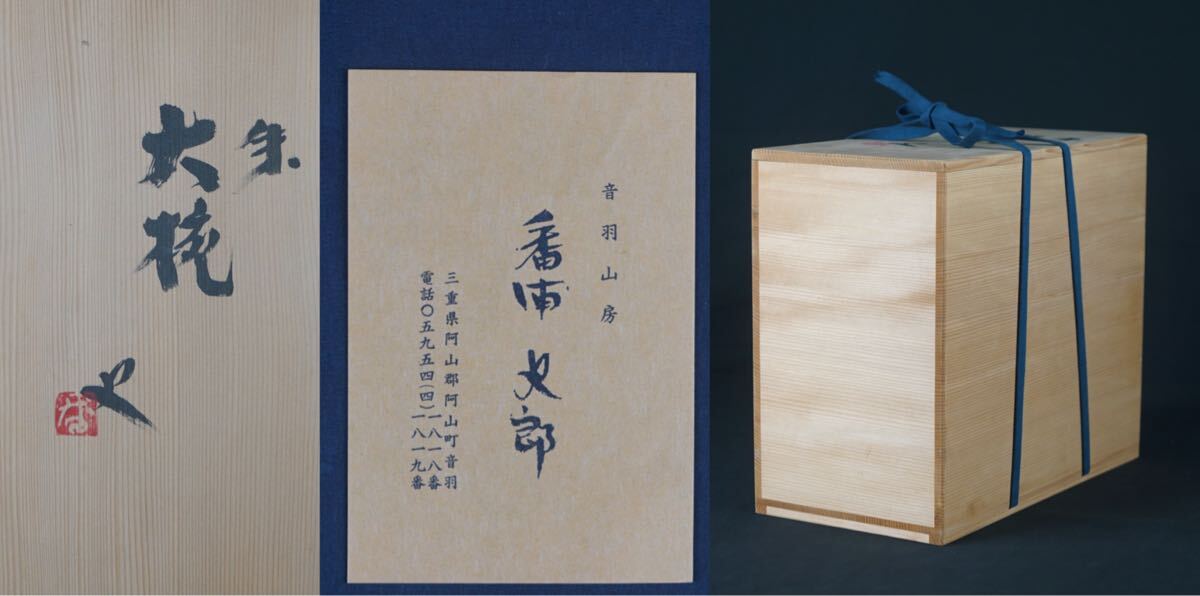 大
史
音羽山房
番浦史郎
三重県阿山郡阿山町音羽
電話〇五九五四(四)一八一八番
一八一九番